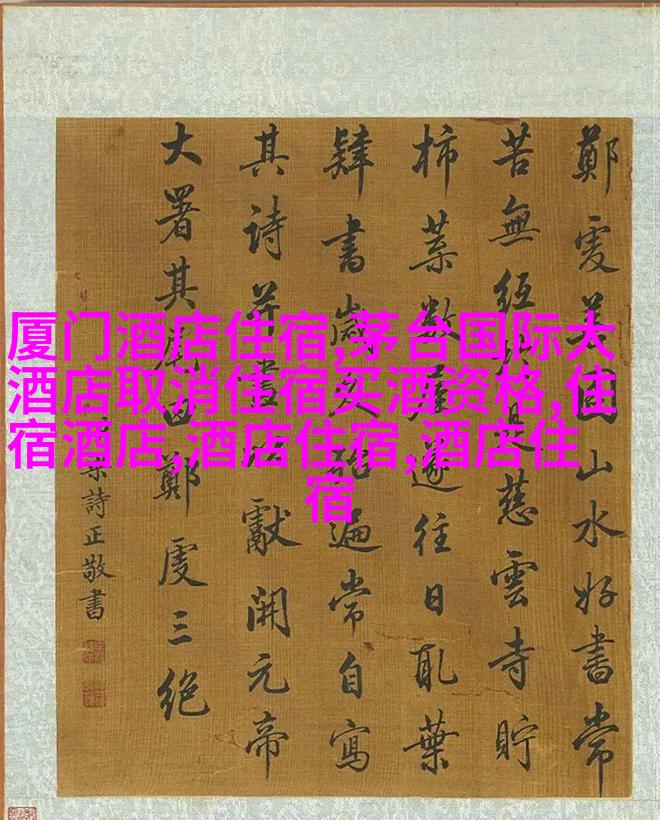 厦门酒店住宿,茅台国际大
酒店取消住宿买酒资格,住
宿酒店,酒店住宿,酒店住
宿
鄭虔善圖山水好書常
苦無紙於是慈雲寺貯
柿葉數屋遂往日取葉
肄書歲久殆遍常自寫
其詩并畫以獻開元帝
大署其尾曰鄭虔三絕
梁詩正敬書